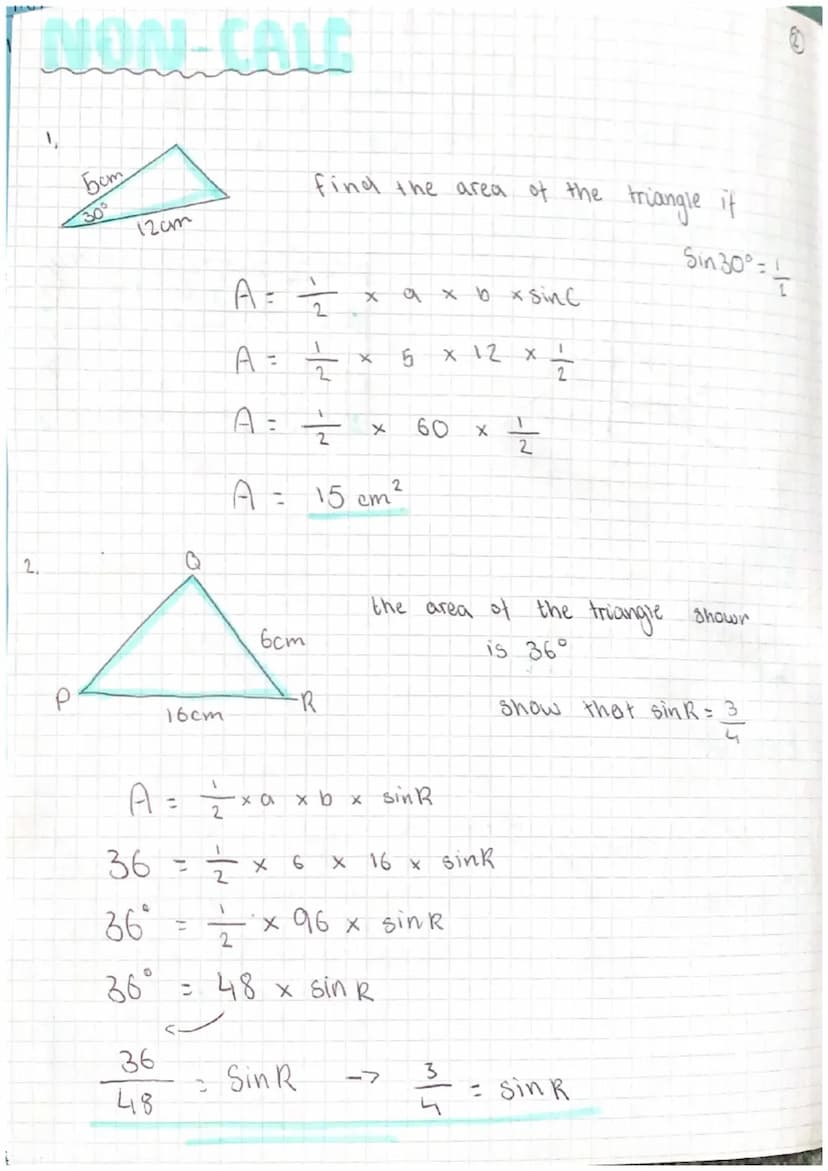 NON-CALC
2
1.
5cm
30°
12cm
find the area of the triangle if
Sin30° = 1/2
A = 1/2 × a × b × sinC
A = 1/2 × 5 × 12 × 1/2
A = 1/2 × 60 × 1/2
A = 15 cm²
2.
Q
the area of the triangle shown
6cm
is 36°
P
R
16cm
show that sinR = 3/4
A = 1/2 × a × b × sinR
36 = 1/2 × 6 × 16 × sinR
36° = 1/2 × 96 × sinR
36° = 48 × sin R
36/48 = SinR → 3/4 = sin R